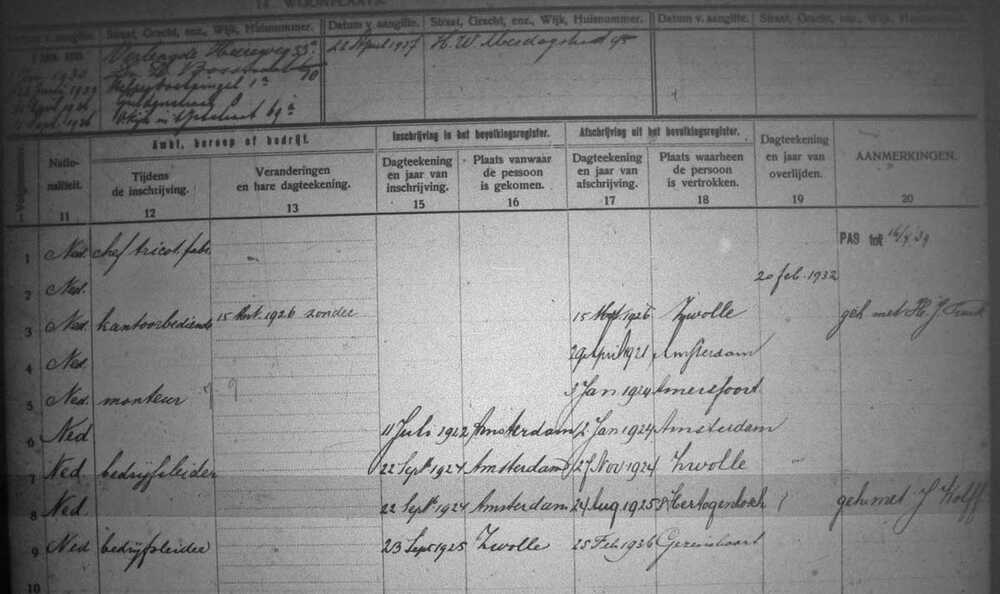 14 WOONPLAATS.
Datum v. aangifte. Straat, Gracht, enz., Wijk, Huisnummer. Datum v. aangifte. Straat, Gracht, enz., Wijk, Huisnummer. Datum v. aangifte. Straat, Gracht, enz., Wijk, Huisnummer.
Verlengde Heereweg 33a 22 April 1937 H. W. Mesdagstraat 45
1930 70
Juni 1929 1a
April 1926
Sept. 1926 69a
Ambt, beroep of bedrijf. Inschrijving in het bevolkingsregister. Afschrijving uit het bevolkingsregister.
Natio- naliteit. Tijdens de inschrijving. Veranderingen en hare dagteekening. Dagteekening en jaar van inschrijving. Plaats vanwaar de persoon is gekomen. Dagteekening en jaar van afschrijving. Plaats waarheen de persoon is vertrokken. Dagteekening en jaar van overlijden. AANMERKINGEN.
11 12 13 15 16 17 18 19 20
1 Ned. chef tricot. fabr. PAS tot 16/9 39
2 Ned. 20 feb. 1932
3 Ned. kantoorbediende 15 1926 zonder 15 1926 Zwolle geh met H. J.
4 Ned. 29 April 1921 Amsterdam
5 Ned. monteur 3 Jan 1924 Amersfoort
6 Ned 11 Juli 1922 Amsterdam 2 Jan 1924 Amsterdam
7 Ned. bedrijfsleider 22 Sept 1924 Amsterdam 27 Nov 1924 Zwolle
8 Ned. 22 Sept 1924 Amsterdam 24 Aug 1925 's Hertogenbosch geh met J Wolff
9 Ned bedrijfsleider 23 Sept 1925 Zwolle 25 Feb 1936 Gezinskaart
10